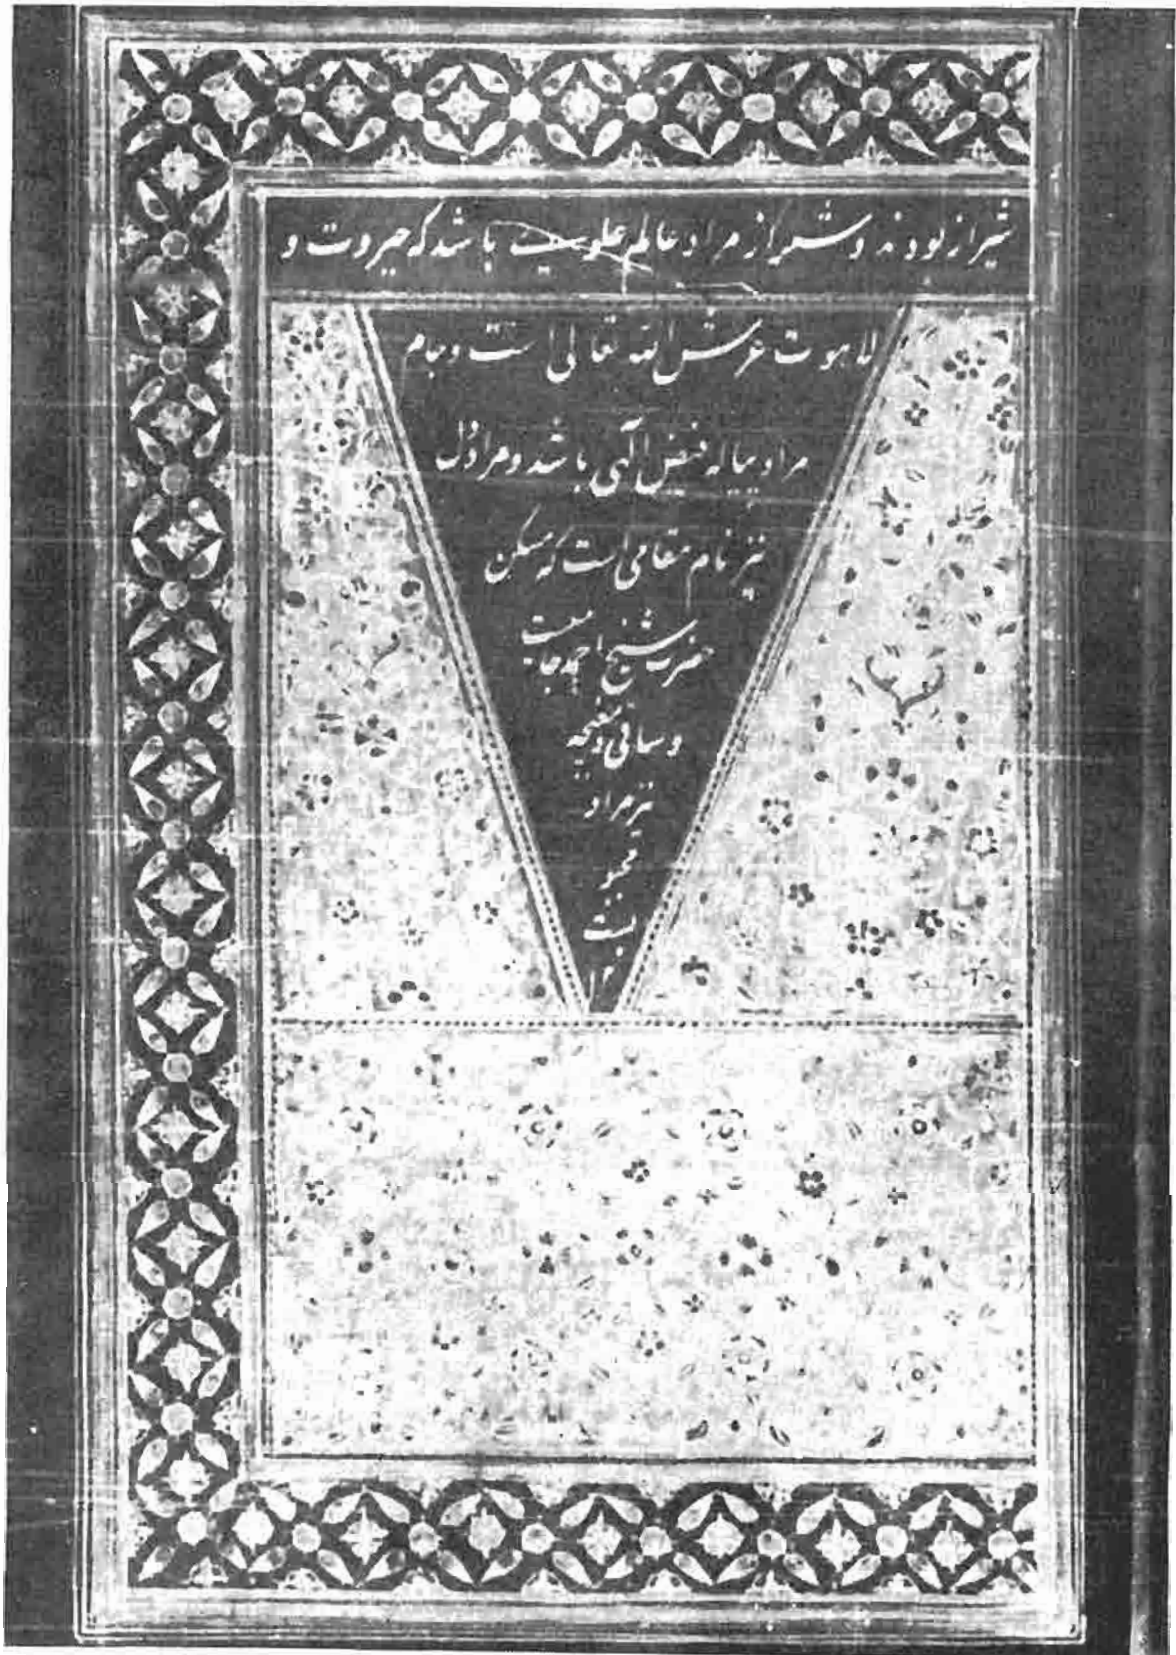 شیراز بودند و شیراز مراد عالم علویست باشد که جبروت و
لاهوت عرش الله تعالی است و جام
مراد پیاله فیض الهی باشد و مراد دل
نیز نام مقامی است که مسکن
حضرت شیخ احمد جامیست
و ساقی و مغبچه
نیز مراد
محبو
بست
۱۲